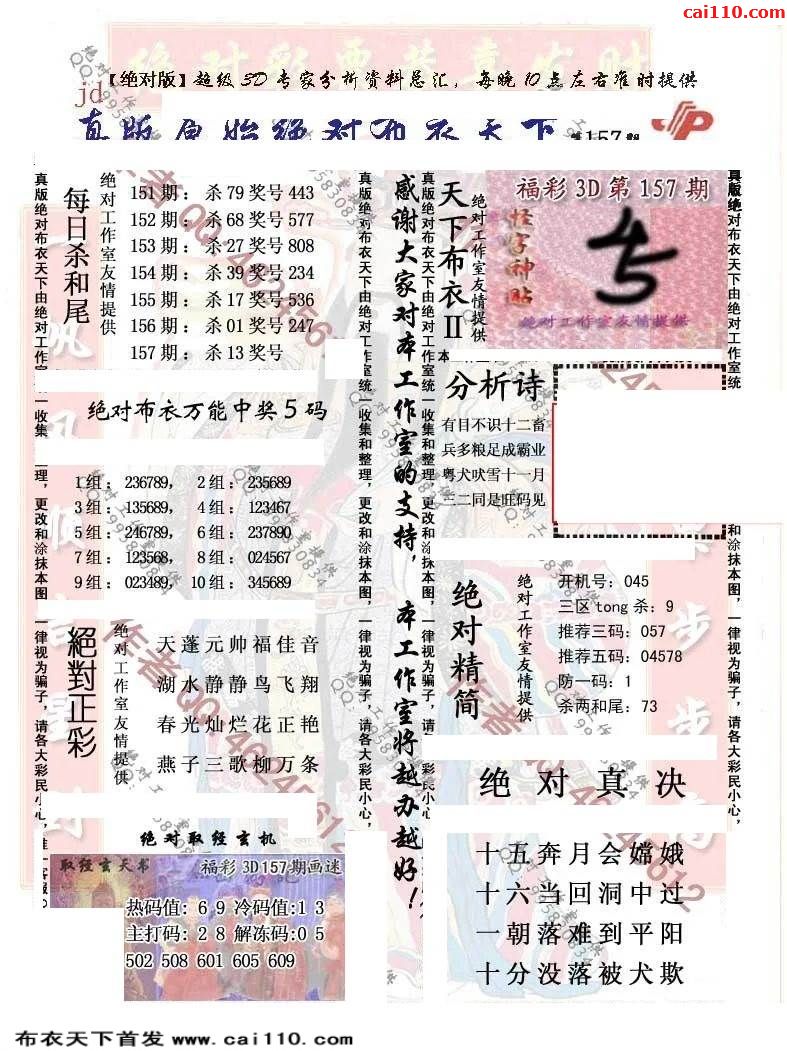 cai110.com
绝对彩票
【绝对版】超级3D专家分析资料总汇，每晚10点左右准时提供
jd
真版原始绝对布衣天下
第157期
真版绝对布衣天下由绝对工作室统一收集和整理，更改和涂抹本图，一律视为骗子，请各大彩民小心，
每日杀和尾
绝对工作室友情提供
151期：杀79奖号443
152期：杀68奖号577
153期：杀27奖号808
154期：杀39奖号234
155期：杀17奖号536
156期：杀01奖号247
157期：杀13奖号
绝对布衣万能中奖5码
1组：236789，2组：235689
3组：135689，4组：123467
5组：246789，6组：237890
7组：123568，8组：024567
9组：023489，10组：345689
絕對正彩
绝对工作室友情提供
天蓬元帅福佳音
湖水静静鸟飞翔
春光灿烂花正艳
燕子三歌柳万条
绝对取经玄机
取经玄天书
福彩3D157期画迷
热码值：69冷码值:13
主打码：28解冻码:05
502 508 601 605 609
感谢大家对本工作室的支持，本工作室将越办越好！
天下布衣II
绝对工作室友情提供
福彩3D第157期
怪字神贴
绝对工作室友情提供
分析诗
有目不识十二畜
兵多粮足成霸业
粤犬吠雪十一月
二二同是旺码见
绝对精简
绝对工作室友情提供
开机号：045
三区tong杀：9
推荐三码：057
推荐五码：04578
防一码：1
杀两和尾：73
绝对真决
十五奔月会嫦娥
十六当回洞中过
一朝落难到平阳
十分没落被犬欺
布衣天下首发 www.cai110.com